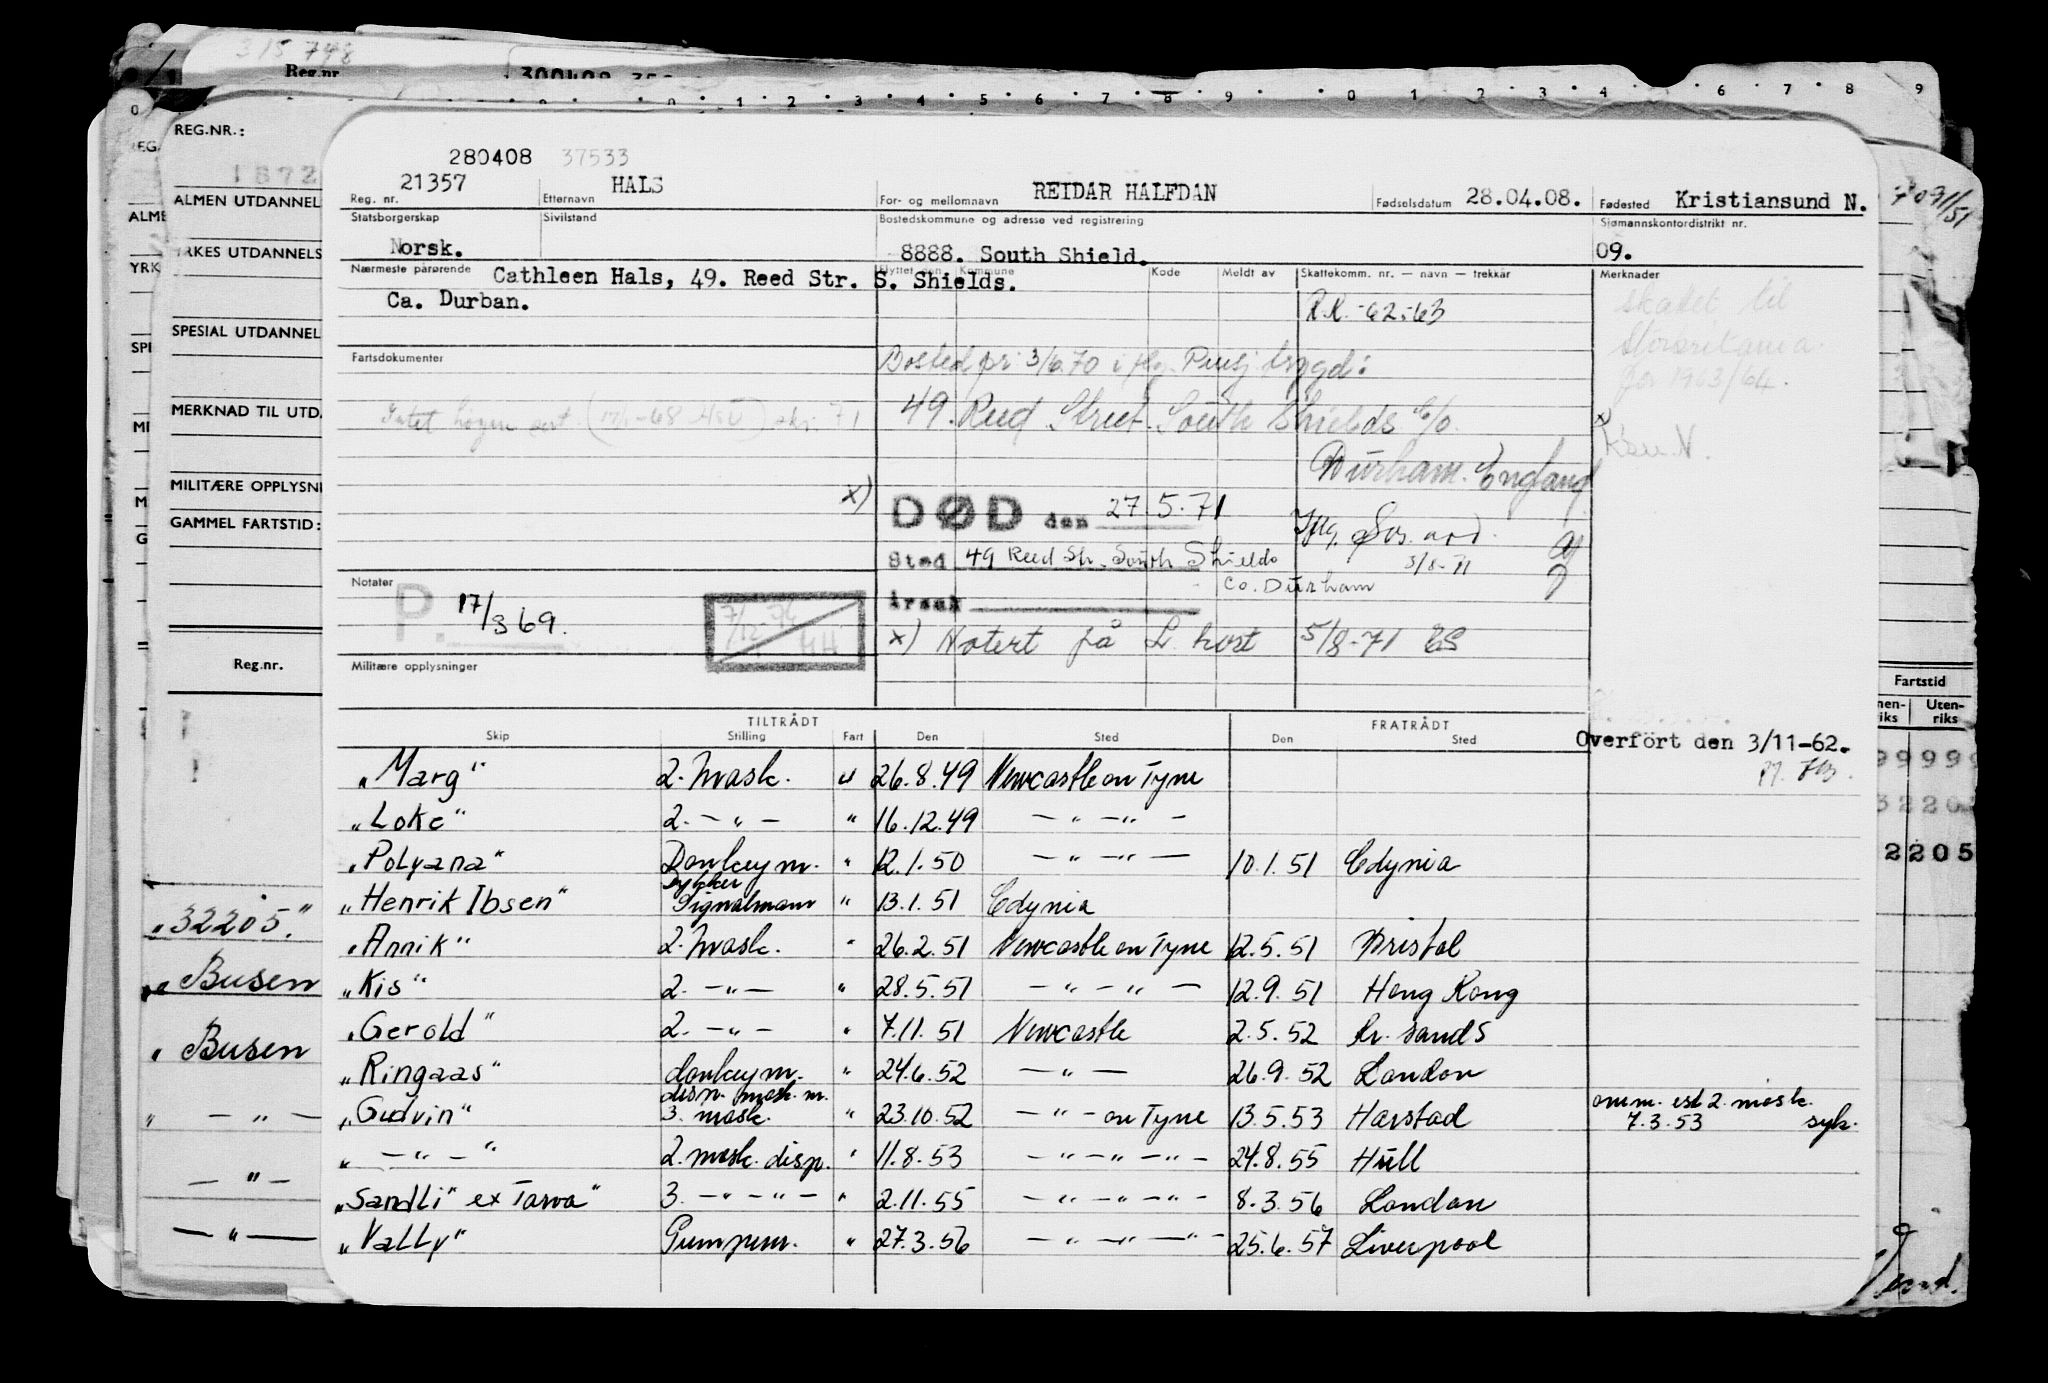 315 748
Reg.nr
0 1 2 3 4 5 6 7 8 9 0 1 2 3 4 6 7 8 9
REG.NR.:
1872
ALMEN UTDANNEL
YRKES UTDANNELS
SPESIAL UTDANNEL
MERKNAD TIL UTD.
MILITÆRE OPPLYSNI
GAMMEL FARTSTID:
Reg.nr.
„32205."
„ Busen
„ Busen
„ — „ —
— „ —
— „ —
280408 37533
21357 HALS REIDAR HALFDAN 28.04.08. Kristiansund N.
Reg. nr. Etternavn For- og mellomnavn Fødselsdatum Fødested
Statsborgerskap Sivilstand Bostedskommune og adresse ved registrering Sjømannskontordistrikt nr.
Norsk. 8888. South Shield. 09.
Nærmeste pårørende Cathleen Hals, 49. Reed Str. S. Shields.
Flyttet den Kommune Kode Meldt av Skattekomm. nr. — navn — trekkår Merknader
Ca. Durban.
R.K. -62-63
skattet til
Storbritania
for 1963/64.
Fartsdokumenter
Bosted pr. 3/6.70 i flg. Pensj. trygd:
49. Reed Street. South Shields C/o.
Durham. England
x)
Ksu. N.
x) DØD den 27.5.71
Sted 49 Reed Str. South Shields
Co. Durham
3/8-71
Årsak
x) Notert på L. kort 5/8-71 ES
Notater
P. 17/3 69.
7/12-76
HH
Militære opplysninger
TILTRÅDT FRATRÅDT
Skip Stilling Fart Den Sted Den Sted
Overført den 3/11-62.
„Marg" 2. mask. u 26.8.49 Newcastle on Tyne
„Loke" 2. — „ — „ 16.12.49 — „ — „ —
„Polyana" Donkeym. „ 12.1.50 — „ — „ — 10.1.51 Gdynia
„Henrik Ibsen" Signalmann „ 13.1.51 Gdynia
„Annik" 2. mask. „ 26.2.51 Newcastle on Tyne 12.5.51 Bristol
„Kis" 2. — „ — „ 28.5.51 — „ — „ — 12.9.51 Hong Kong
„Gerold" 2. — „ — „ 7.11.51 Newcastle 2.5.52 Kr. sands
„Ringaas" donkeym. „ 24.6.52 — „ — 26.9.52 London
„Gudvin" disp. mask. m. 3. mask. „ 23.10.52 — „ — on Tyne 13.5.53 Harstad omm. est 2. mask. 7.3.53 syk.
„ — „ — " 2. mask. disp. „ 11.8.53 — „ — „ — „ — 24.8.55 Hull
„Sandli" ex Tarva" 3. — „ — „ — „ 2.11.55 — „ — „ — „ — 8.3.56 London
„Vally" Pumpem. „ 27.3.56 — „ — „ — „ — 25.6.57 Liverpool
Fartstid
Uten-
riks
2205